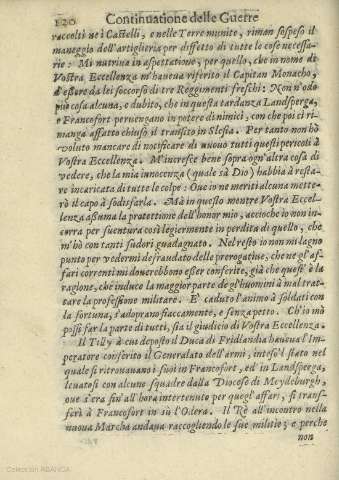 120 Continuatione delle Guerre
raccolti nè i Castelli, e nelle Terre munite, riman sospeso il
maneggio dell'artiglieria per diffetto di tutte le cose necessa-
rie: Mi nutriua in aspettatione, per quello, che in nome di
Vostra Eccellenza m'haueua riferito il Capitan Monacho,
d'essere da lei soccorso di tre Reggimenti freschi: Non n'odo
più cosa alcuna, e dubito, che in questa tardanza Landsperga,
e Francofort peruengano in potere di nimici, con che poi ci ri-
manga affatto chiuso il transito in Slesia. Per tanto non hò
voluto mancare di notificare di nuouo tutti questi pericoli à
Vostra Eccellenza. M'incresce bene sopra ogn'altra cosa di
vedere, che la mia innocenza (quale sà Dio) habbia à resta-
re incaricata di tutte le colpe: Oue io ne meriti alcuna mette-
rò il capo à sodisfarla. Mà in questo mentre Vostra Eccel-
lenza assuma la protettione dell'honor mio, accioche io non in-
corra per suentura così legiermente in perdita di quello, che
m'hò con tanti sudori guadagnato. Nel resto io non mi lagno
punto per vedermi defraudato delle prerogatiue, che ne gl'af-
fari correnti mi douerebbono esser conferite, già che quest'è la
ragione, che induce la maggior parte de gl'huomini à mal trat-
tare la professione militare. E' caduto l'animo à soldati con
la fortuna, s'adoprano fiaccamente, e senza petto. Ch'io mà
possi far la parte di tutti, sia il giudicio di Vostra Eccellenza.
Il Tilly à cui deposto il Duca di Fridlandia haueua l'Im-
peratore conferito il Generalato dell'armi, inteso'l stato nel
quale si ritrouauano i suoi in Francofort, ed'in Landsperga,
leuatosi con alcune squadre dalla Diocese di Meydeburgh,
oue s'era sin'all'hora intertenuto per quegl'affari, si trans-
ferì à Francofort in sù l'Odera. Il Rè all'incontro nella
nuoua Marcha andaua raccogliendo le sue militie; e perche
non
Colección ABANCA